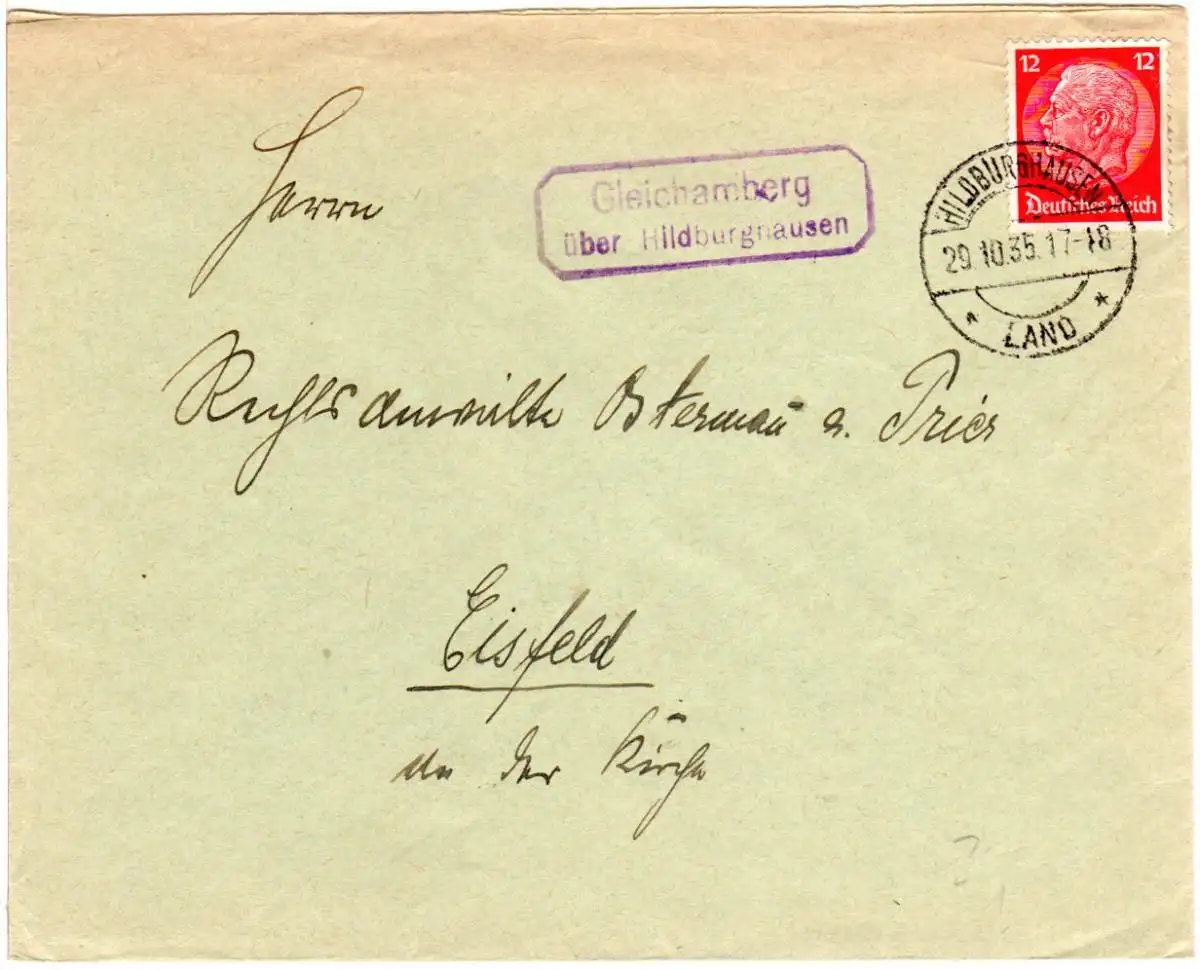 12 12
Deutsches Reich
HILDBURGHAUSEN
29.10.35.17-18
* LAND *
Gleichamberg
über Hildburghausen
Herrn
Rechtsanwälte Ostermañ u. Trier
Eisfeld
an der Kirche